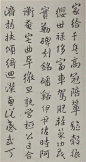 家給千兵高冠陪輦驅轂振
纓世祿侈富車駕肥輕策功茂
實勒碑刻銘磻溪伊尹佐時阿
衡奄宅曲阜微旦孰營桓公匡合
濟弱扶傾綺迴漢惠說感武丁